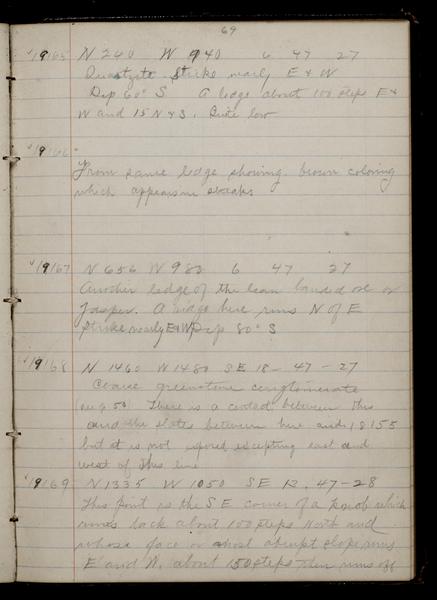 69
19165 N 240 W 940 6 47 27
Quartzite Strike nearly E & W
Dip 60° S A ledge about 100 steps E &
W and 15 N & S. Quite low
19166
From same ledge showing brown coloring
which appears in streaks
19167 N 656 W 983 6 47 27
Another ledge of the lean banded ore or
Jasper. A ridge here runs N of E
Strike nearly E & W Dip 80° S
19168 N 1460 W 1480 SE 18 - 47 - 27
Coarse greenstone conglomerate
There is a contact between this
and the slates between here and 18155
but it is not exposed excepting east and
west of this line
19169 N 1335 W 1050 SE 12, 47-28
This point is the SE corner of a knob which
runs back about 100 steps North and
whose face or most abrupt slope runs
E and W, about 150 steps then runs off